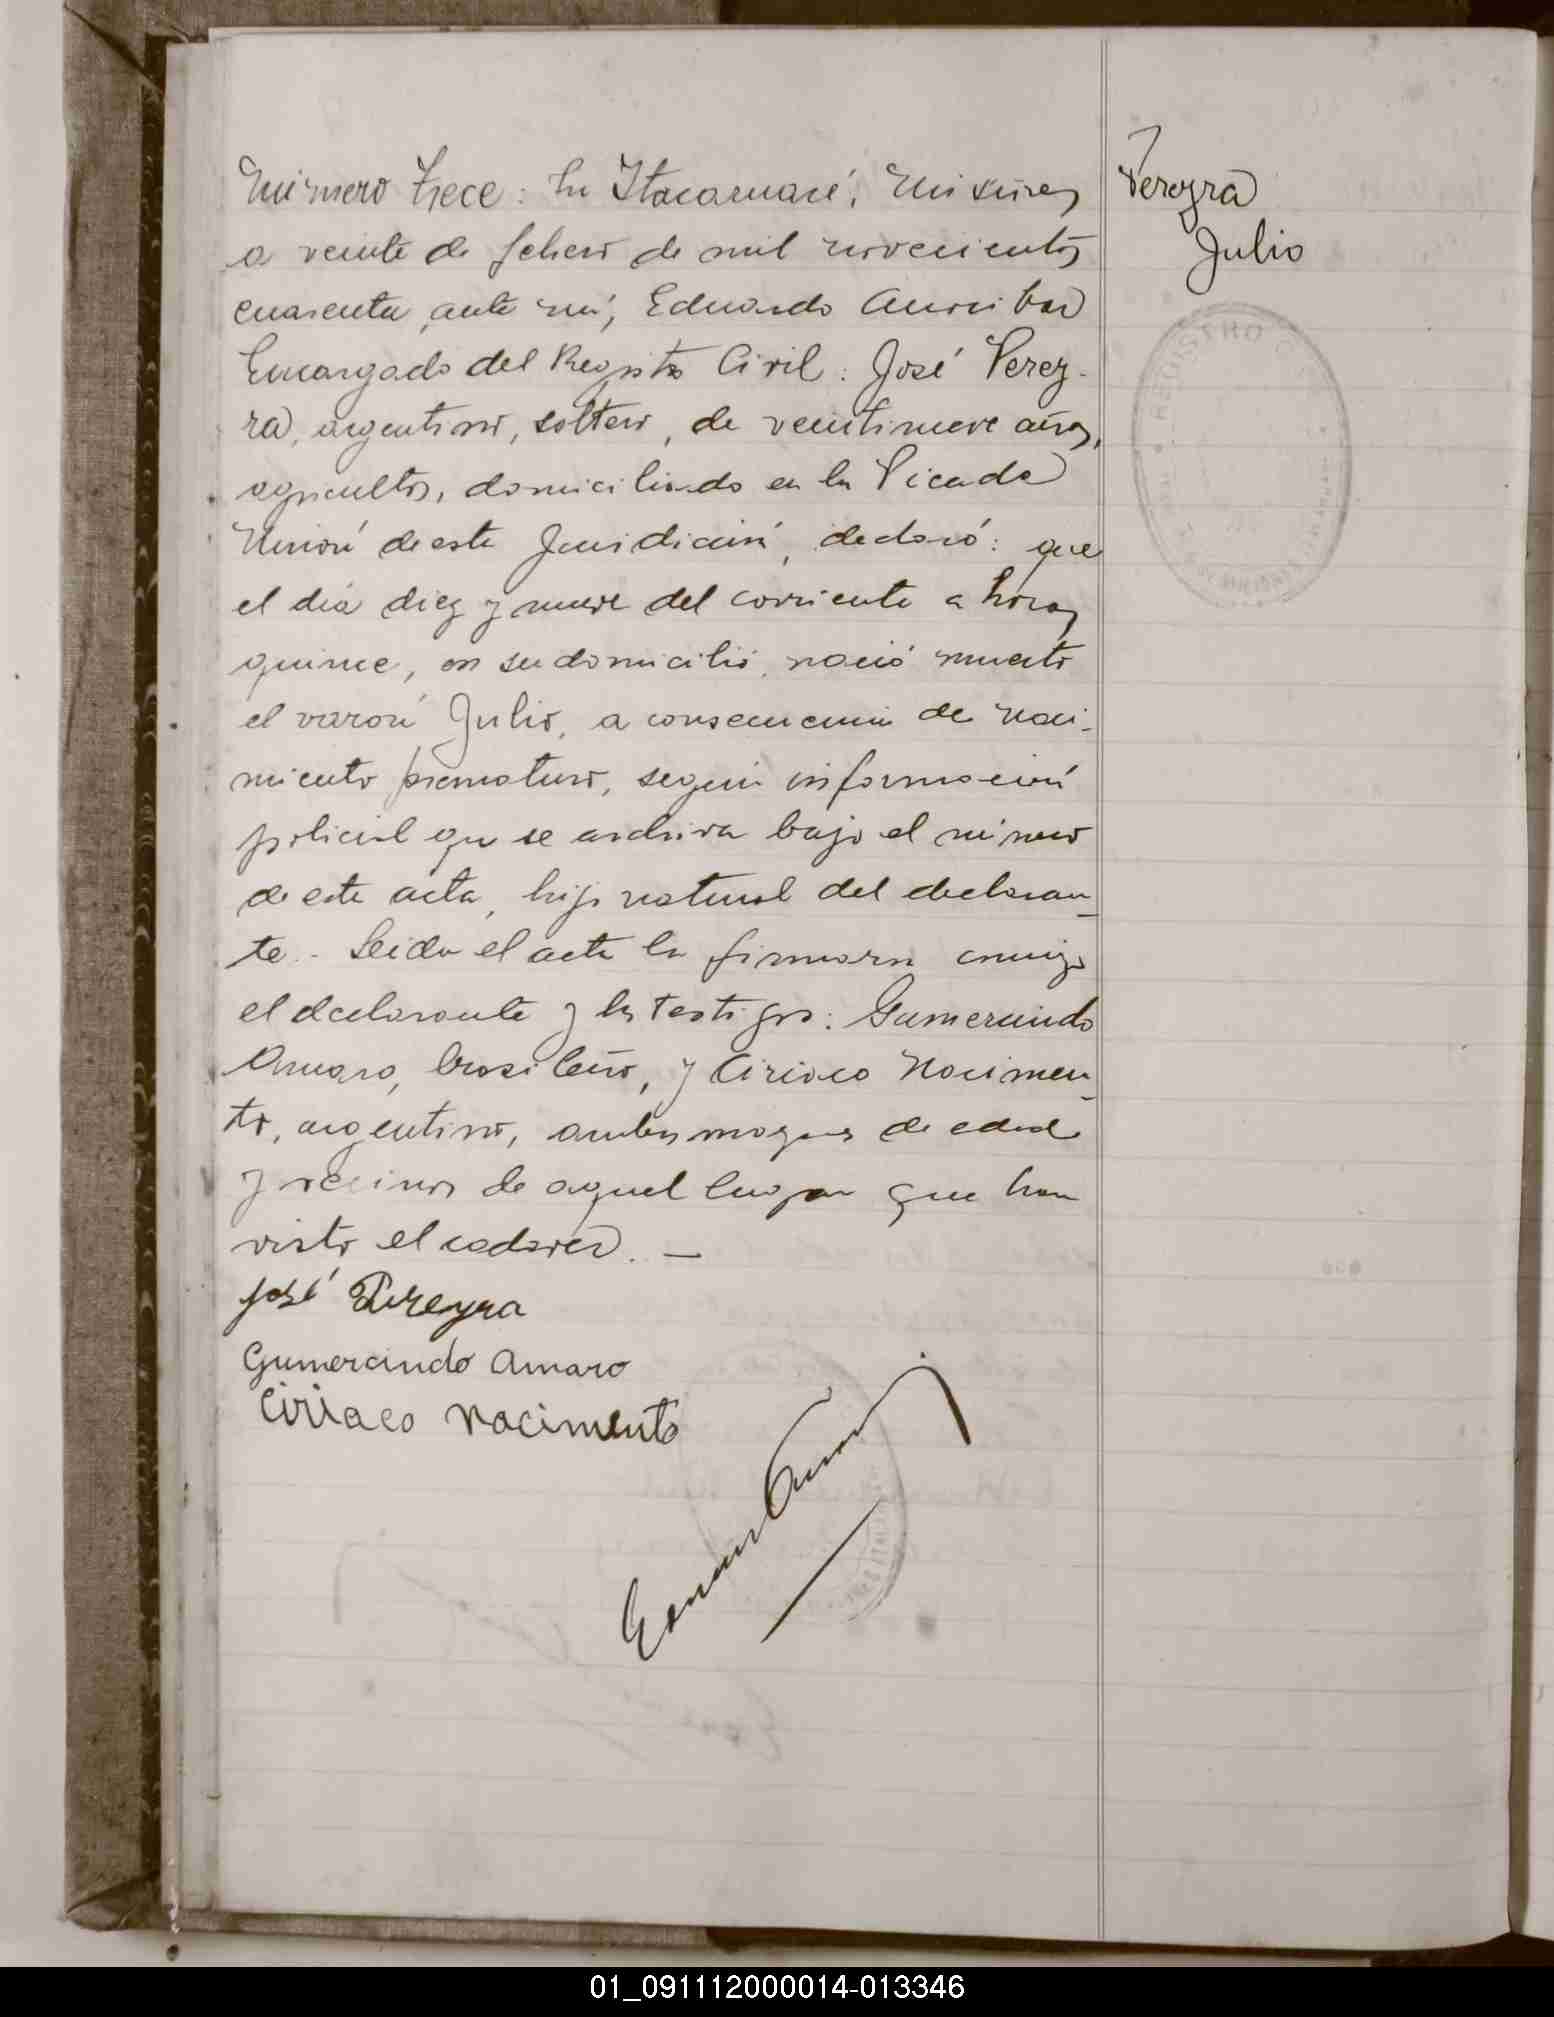 Número trece: En Itacaruaré, Misiones
a veinte de febrero de mil novecientos
cuarenta, ante mí, Eduardo
Encargado del Registro Civil: José Perey-
ra, argentino, soltero, de veintinueve años,
agricultor, domiciliado en la Picada
Unión de esta Jurisdicción, declaró: que
el día diez y nueve del corriente a horas
quince, en su domicilio, nació muerto
el varón Julio, a consecuencia de naci-
miento prematuro, según información
policial que se archiva bajo el número
de este acta, hijo natural del declaran-
te.- Leida el acta la firmaron conmigo
el declarante y los testigos: Gumercindo
Amaro, brasileño, y Ciriaco Nacimen-
to, argentino, ambos mayores de edad
y vecinos de aquel lugar que han
visto el cadáver. —
José Pereyra
Gumercindo Amaro
Ciriaco Nacimento
Pereyra
Julio
REGISTRO
01_091112000014-013346